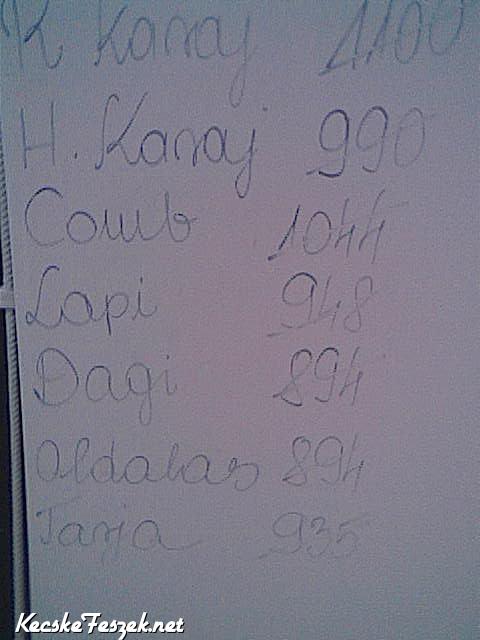 K Karaj 1100
H. Karaj 990
Comb 1044
Lapi 948
Dagi 894
Oldalas 894
Tarja 935
KecskeFeszek.net